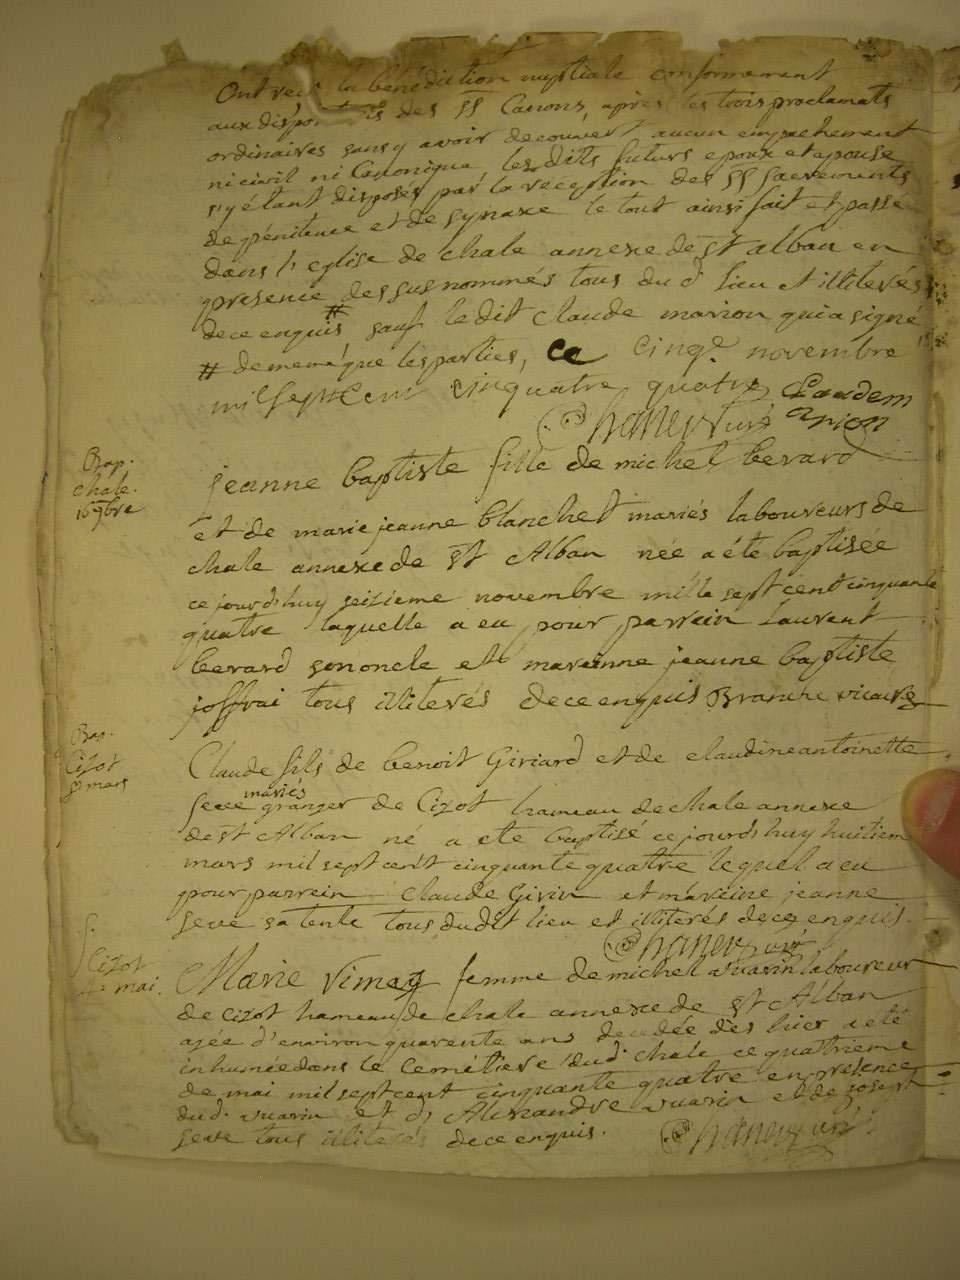 Ont recu la bénédiction nuptiale conformement
aux dispo des SS Canons, apres les trois proclamats
ordinaires sans y avoir decouvert aucun empechement
ni civil ni Canonique les dits futurs epoux et epouse
s'y étant disposés par la reception des SS Sacrements
de pénitence et de synaxe le tout ainsi fait et passé
dans l'eglise de chale annexe de St alban en
presence des susnommés tous du d lieu et illiterés
de ce enquis # sauf le dit Claude marion qui a signé
# de meme que les parties, ce cinqe novembre
mil sept Cent cinquatre quatre Claudem
arion
Bap.
chale.
16 9bre
jeanne baptiste fille de michel berard
et de marie jeanne blanchet mariés laboureurs de
chale annexe de St Alban née a été baptisée
ce jourd'huy seizieme novembre mille sept cent cinquante
quatre laquelle a eu pour parrein Laurent
berard son oncle et mareinne jeanne baptiste
joffrai tous illiterés de ce enquis Branche vicaire
Bap.
Cizot
8 mars
Claude fils de benoit Giriard et de claudine antoinette
mariés
seve granger de Cizot hameau de chale annexe
de St Alban né a ete baptisé ce jourd'huy huitiem
mars mil sept cent cinquante quatre lequel a eu
pour parrein Claude Girin et mareine jeanne
seve sa tente tous dudit lieu et illiterés de ce enquis
S.
Cizot
4e mai.
Marie Vimay femme de michel vuarin laboureur
de Cizot hameau de chale annexe de St Alban
agée d'environ quarente ans decedée dès hier a eté
inhumée dans le cemétiere dud chale ce quatrieme
de mai mil sept cent cinquante quatre en presence
du d. vuarin et d'Alexandre vuarin et de joseph
seve tous illiterés de ce enquis.